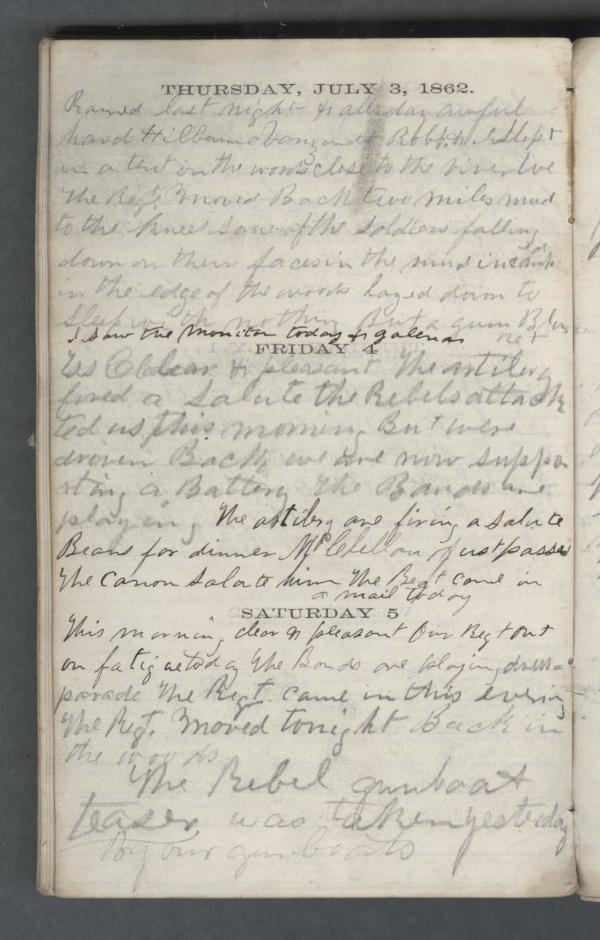 THURSDAY, JULY 3, 1862.
Rained last night & all day awful
hard Hilborn & Robt. H. & I slept
in a tent in the woods close to the river
The Regt. Moved Back two miles mud
to the knees some of the Soldiers falling
down on their faces in the mud in camp
in the edge of the woods layed down to
sleep with nothing But a gum Blan
ket
I saw the Monitor today & galena
FRIDAY 4
Is Cllear & pleasant The artilery
fired a Salute the Rebels attack
ted us this morning But were
droven Back we are now suppo
rting a Battery The Bands are
playing The artilery are firing a salute
Beans for dinner McClellan just passed
The Canon Salute him The Regt came in
a mail today
SATURDAY 5
This morning clear & pleasant Our Regt out
on fatigue today The Bands are playing dress=
parade The Regt. came in this evening
The Regt. Moved tonight Back in
the woods
The Rebel gunboat
teaser was taken yesterday
By our gunboats